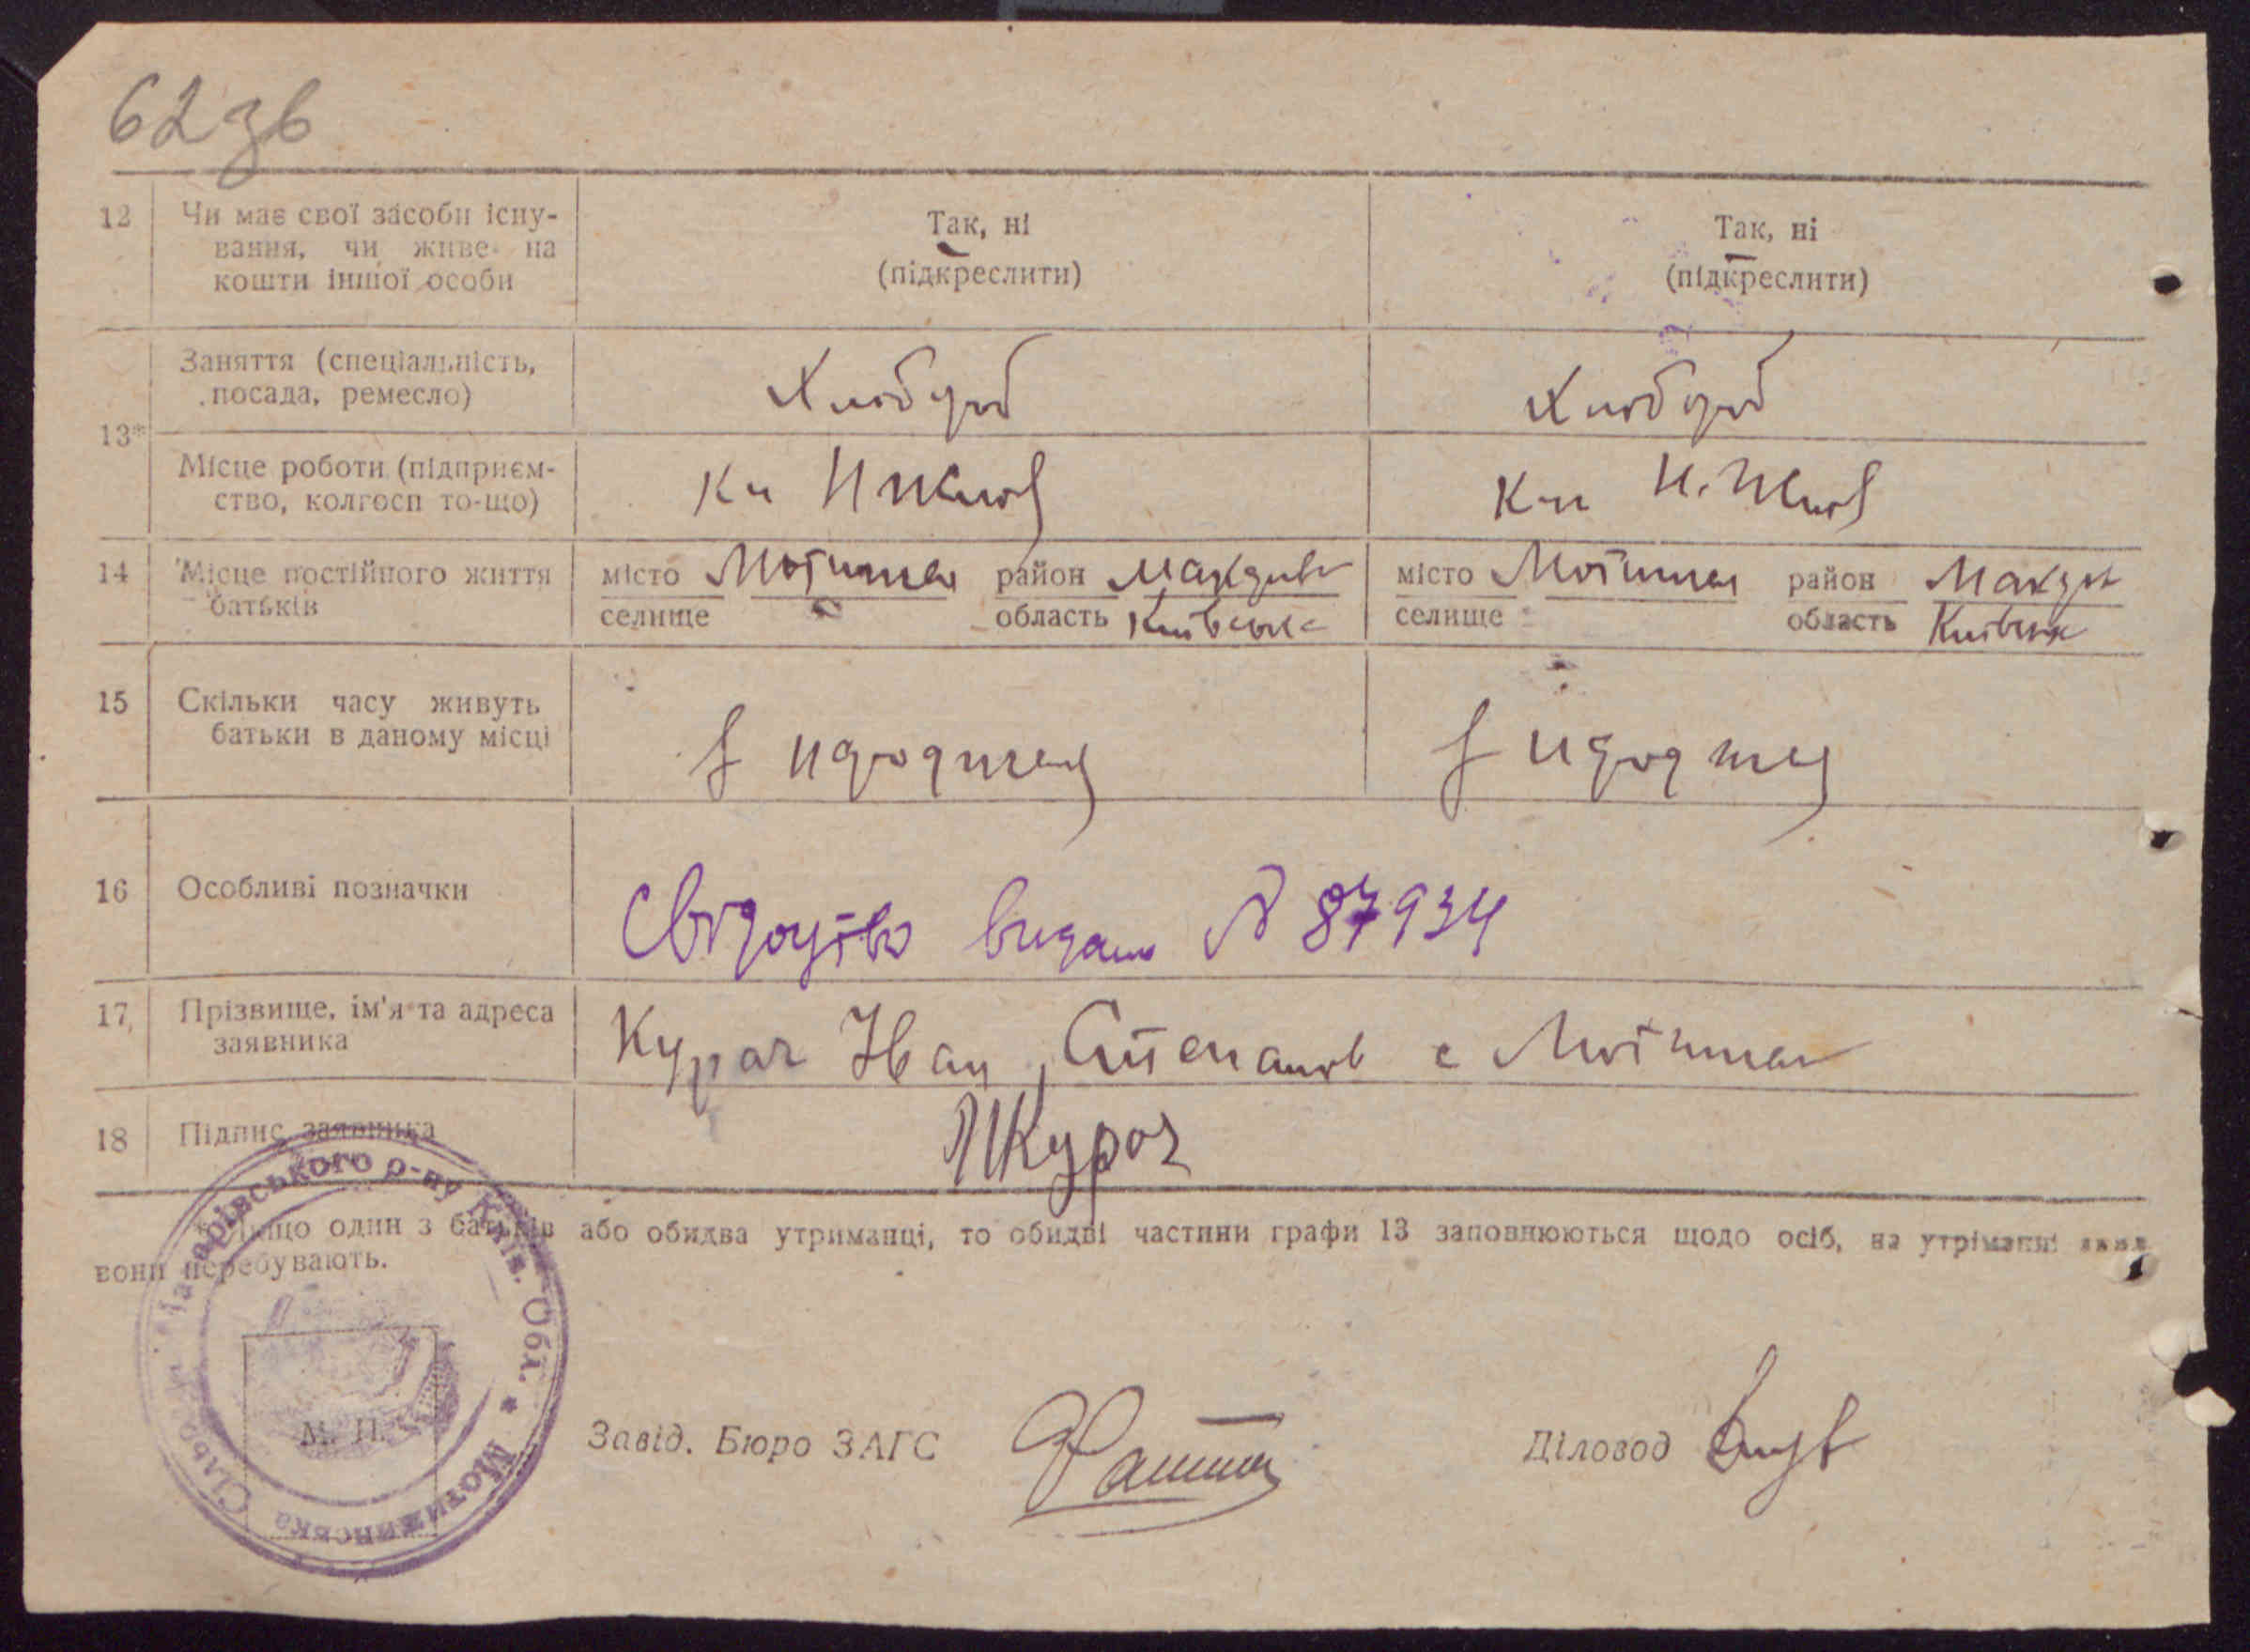 62 зв
12 Чи має свої засоби існу- Так, ні Так, ні
вання, чи живе на (підкреслити) (підкреслити)
кошти іншої особи
13* Заняття (спеціальність, Хлібороб Хлібороб
посада, ремесло)
Місце роботи (підприєм-
ство, колгосп то-що)
14 Місце постійного життя місто Мотижин район Макарів місто Мотижин район Макарів
батьків селище область Київська селище область Київськ
15 Скільки часу живуть
батьки в даному місці
З народження З народжен
16 Особливі позначки Свідоцтво видано № 87934
17 Прізвище, ім'я та адреса Курач Іван Степанов с Мотижин
заявника
18 Підпис заявника Курач
* Якщо один з батьків або обидва утриманці, то обидві частини графи 13 заповнюються щодо осіб, на утріманні яких
вони перебувають.
Макарівського р-ну Київ. Обл. * Мотижинська Сільрада
М. П.
Завід. Бюро ЗАГС Діловод